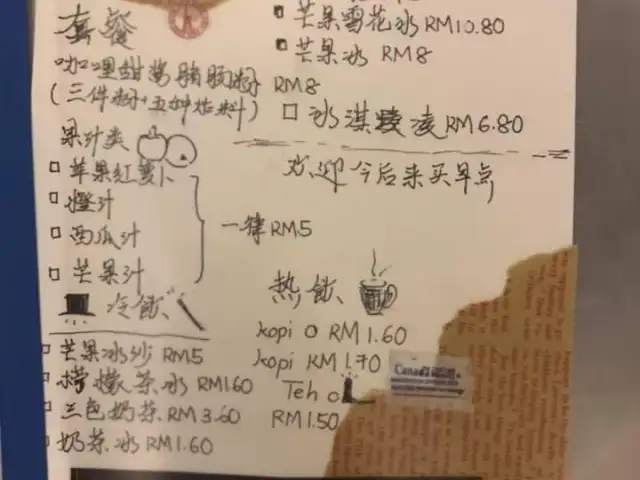 套餐
咖哩甜酱猪肠粉 RM8
(三件粉+五种炸料)
果汁类
苹果红萝卜
橙汁
西瓜汁
芒果汁
一律RM5
冷饮
芒果冰沙 RM5
柠檬茶冰 RM1.60
三色奶茶 RM3.60
奶茶冰 RM1.60
芒果雪花冰 RM10.80
芒果冰 RM8
冰淇凌 RM6.80
欢迎今后来买早点
热饮
kopi o RM1.60
kopi RM1.70
Teh o
RM1.50
Canada